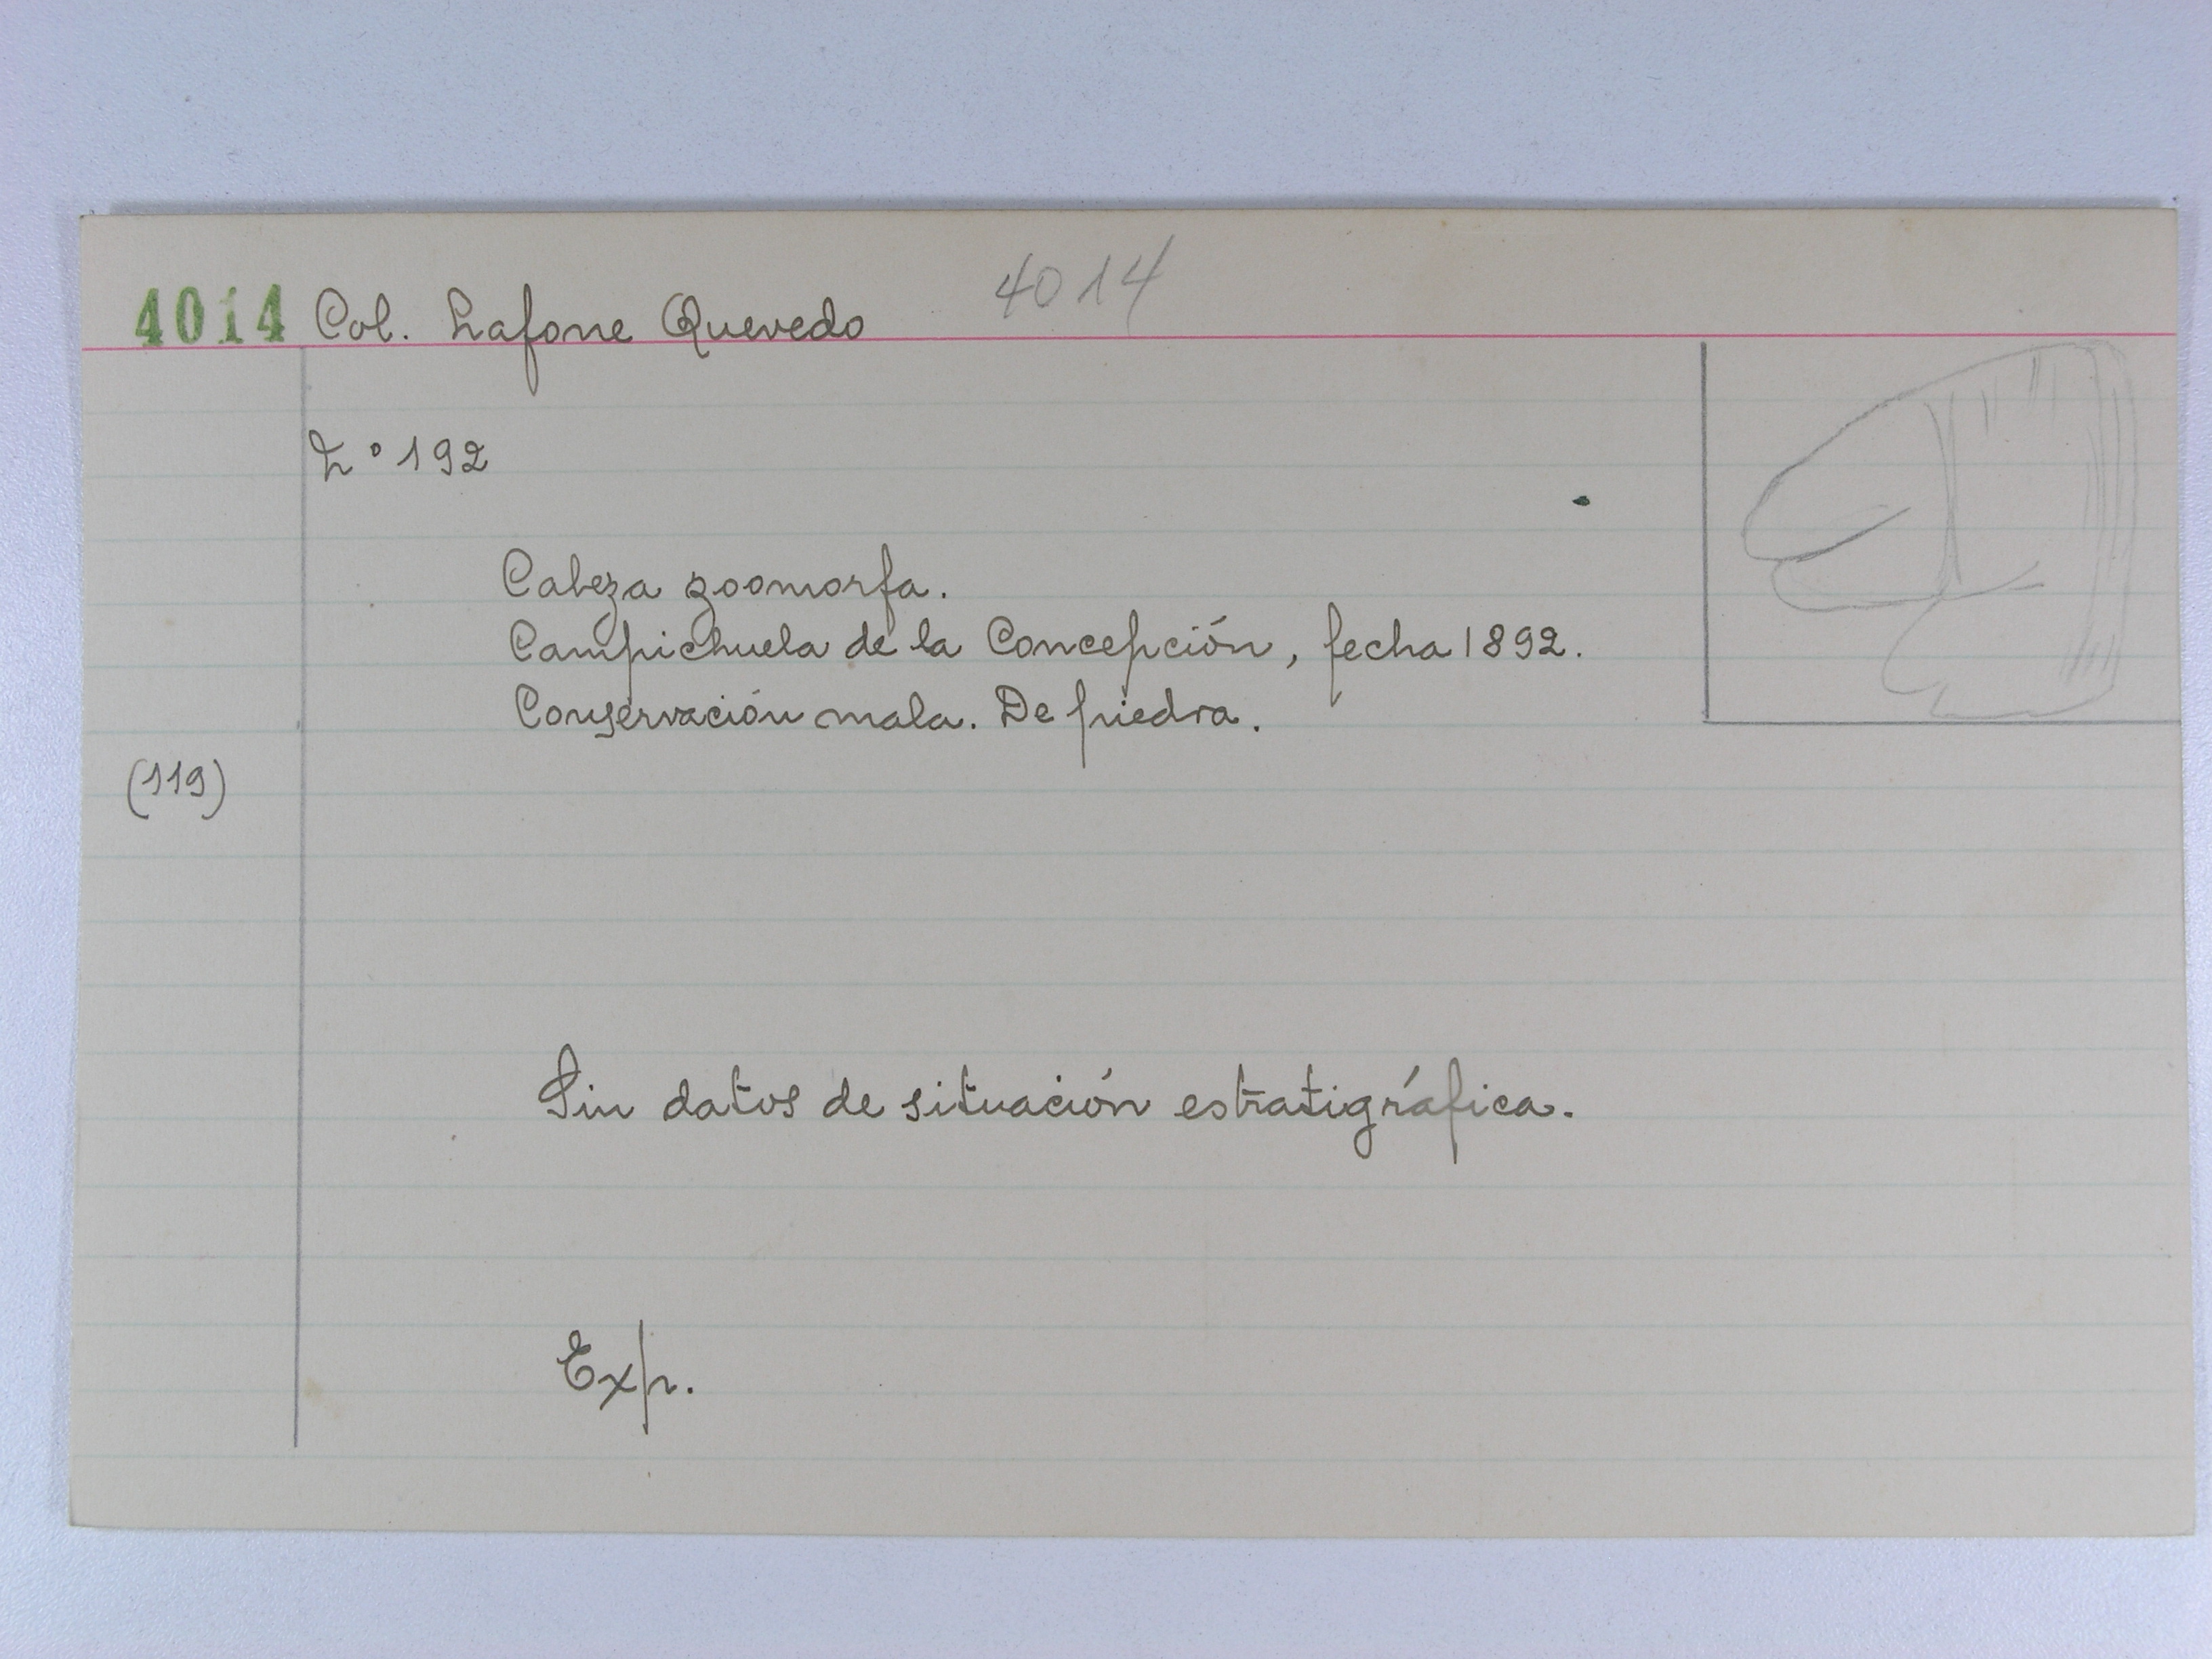 4014 Col. Lafone Quevedo 4014
L° 192
Cabeza zoomorfa.
Campichuela de la Concepción, fecha 1892.
Conservación mala. De piedra.
(119)
Sin datos de situación estratigráfica.
Exp.